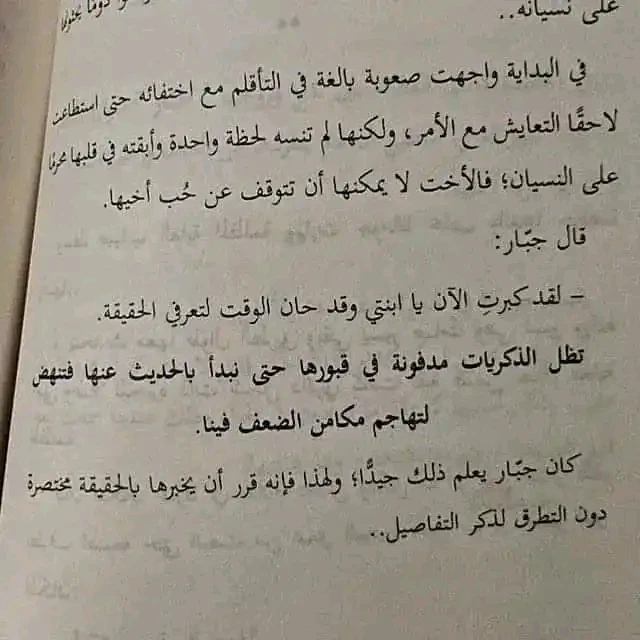 على نسيانه..
في البداية واجهت صعوبة بالغة في التأقلم مع اختفائه حتى استطاعت
لاحقًا التعايش مع الأمر، ولكنها لم تنسه لحظة واحدة وأبقته في قلبها محرمًا
على النسيان؛ فالأخت لا يمكنها أن تتوقف عن حُب أخيها.
قال جبّار:
– لقد كبرتِ الآن يا ابنتي وقد حان الوقت لتعرفي الحقيقة.
تظل الذكريات مدفونة في قبورها حتى نبدأ بالحديث عنها فتنهض
لتهاجم مكامن الضعف فينا.
كان جبّار يعلم ذلك جيدًّا؛ ولهذا فإنه قرر أن يخبرها بالحقيقة مختصرة
دون التطرق لذكر التفاصيل..